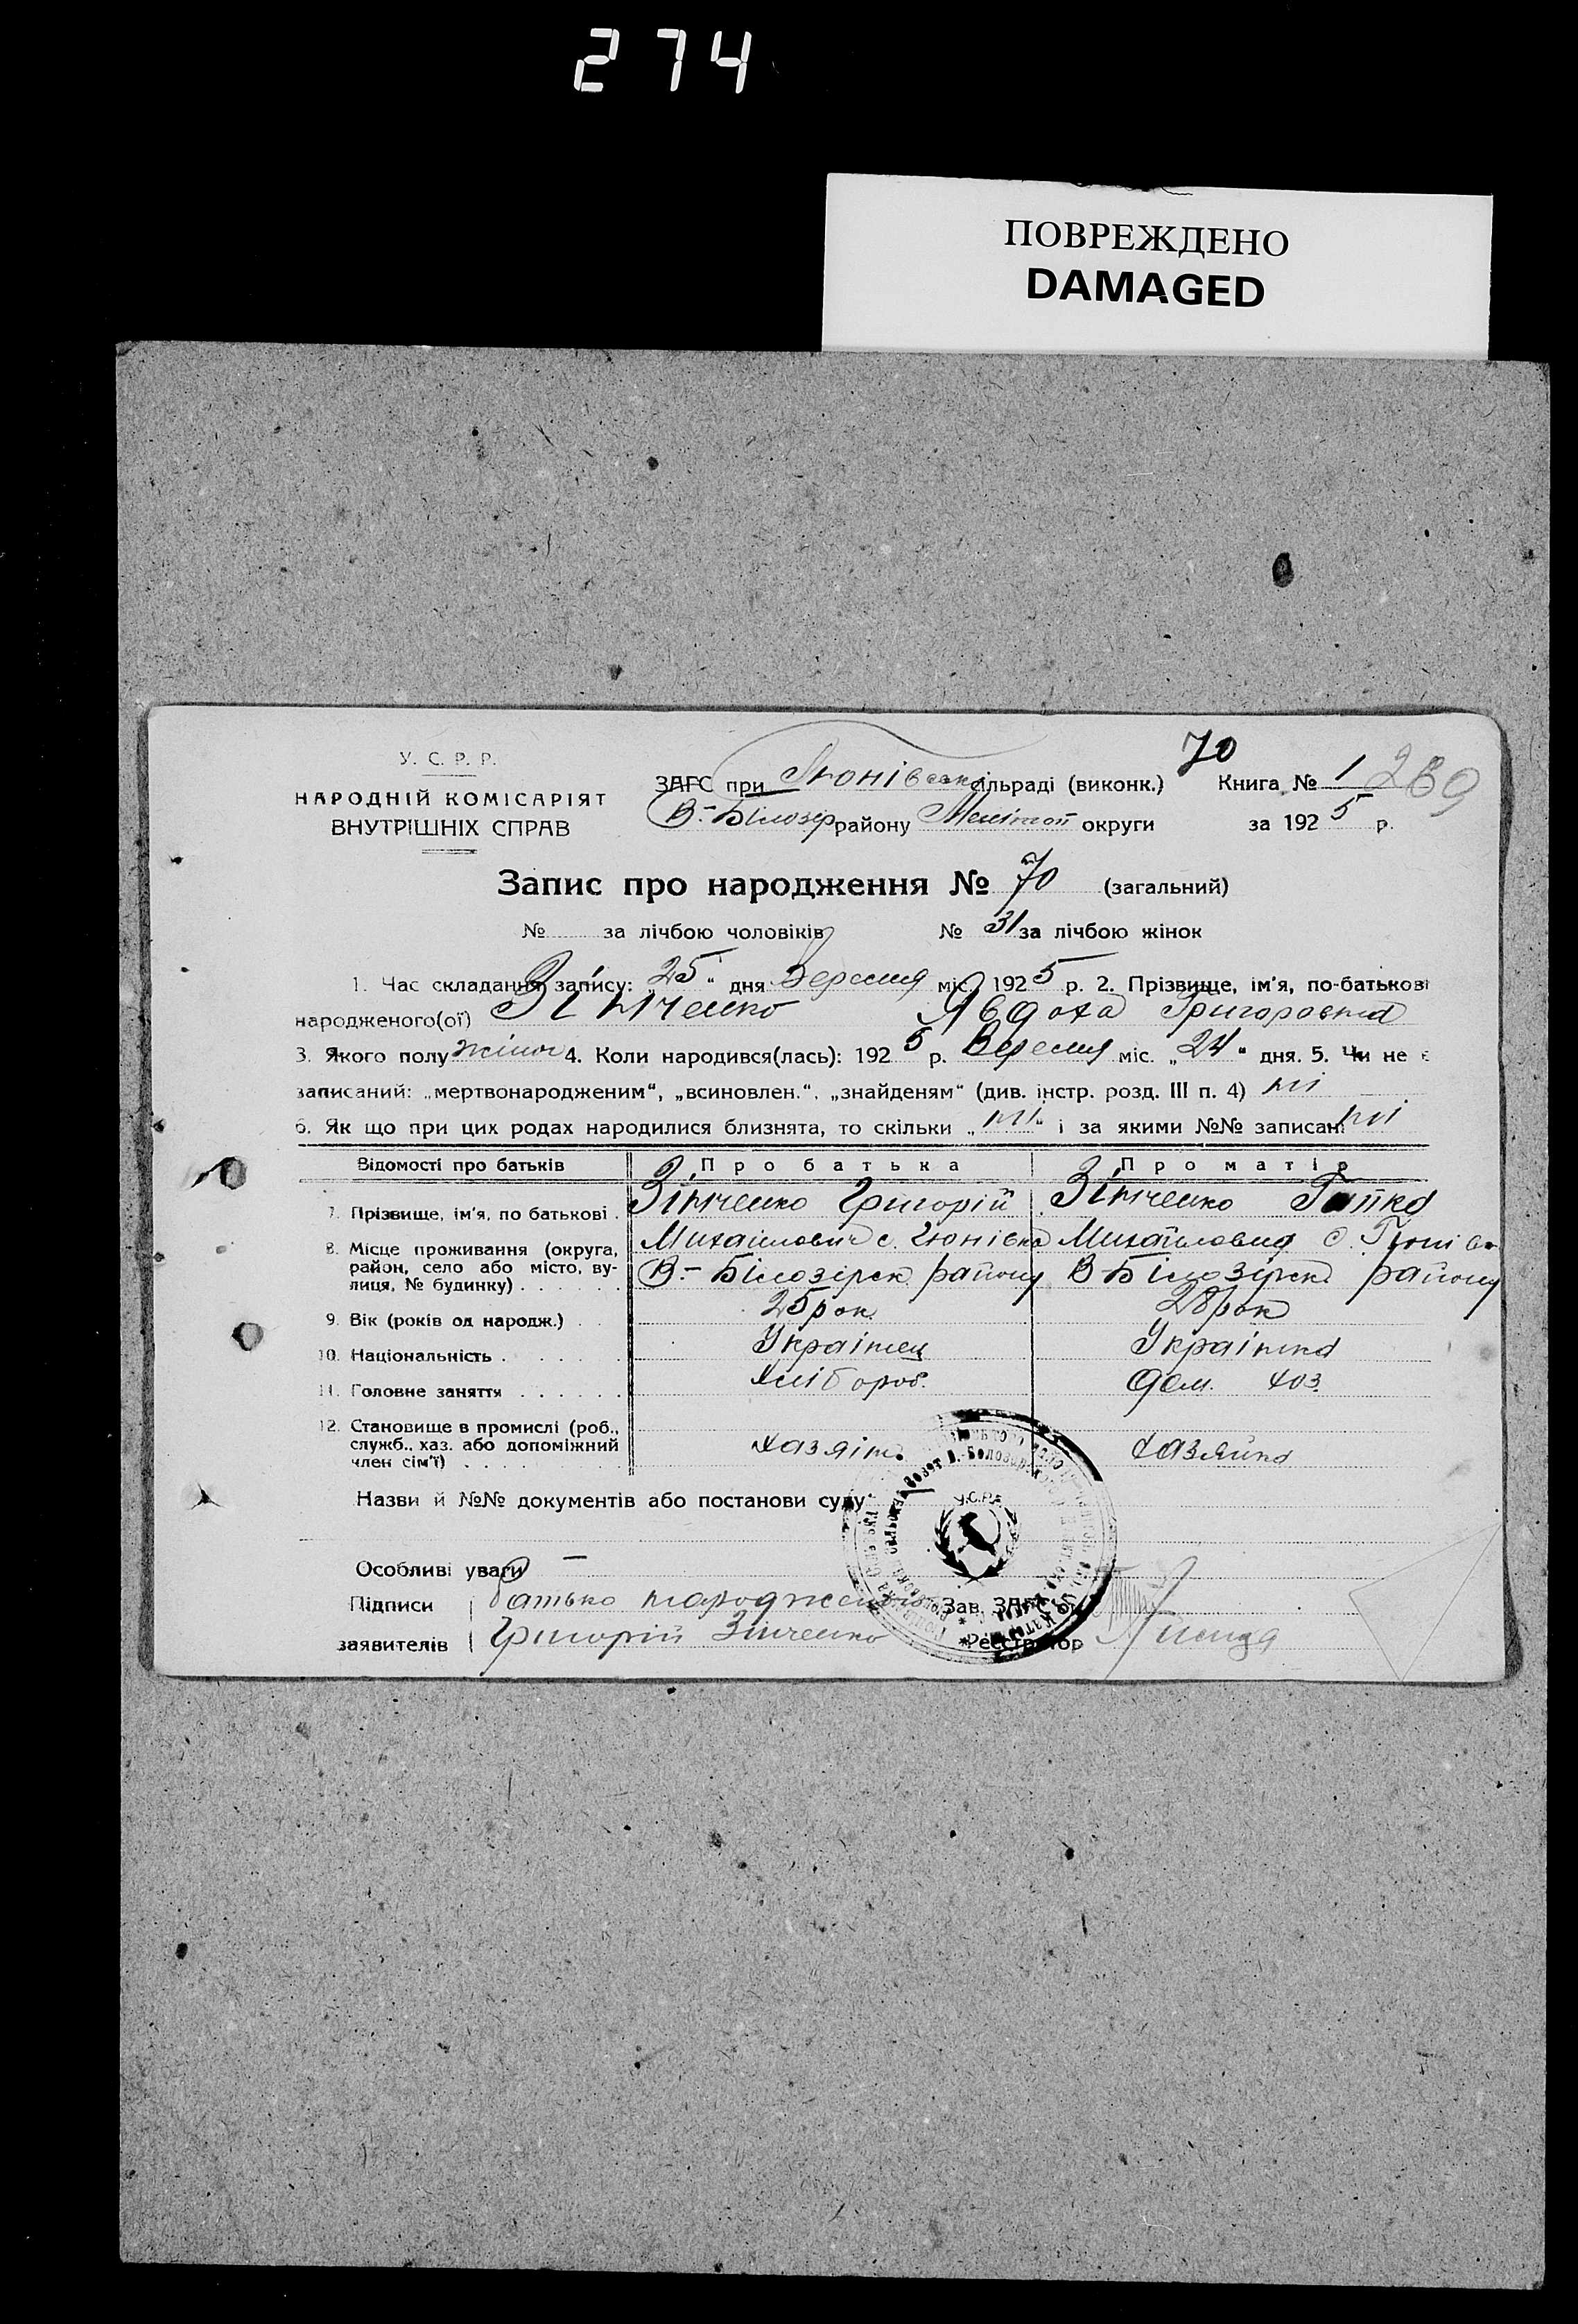 274
ПОВРЕЖДЕНО
DAMAGED
У. С. Р. Р.
НАРОДНІЙ КОМІСАРІЯТ
ВНУТРІШНІХ СПРАВ
70
ЗАГС при сільраді (виконк.) Книга № 1 289
В.-Білозір району Мелітоп округи за 1925 р.
Запис про народження № 70 (загальний)
№ за лічбою чоловіків № 31 за лічбою жінок
1. Час складання запису: „25“ дня Вересня міс. 1925 р. 2. Прізвище, ім'я, по-батькові
народженого(ої) Зінченко Явдоха Григоровна
3. Якого полу жіноч 4. Коли народився(лась): 1925 р. Вересня міс. „24“ дня. 5. Чи не є
записаний: „мертвонародженим“, „всиновлен.“, „знайденям“ (див. інстр. розд. III п. 4) ні
6. Як що при цих родах народилися близнята, то скільки „ні“ і за якими №№ записані ні
Відомості про батьків Про батька Про матір
7. Прізвище, ім'я, по батькові . Зінченко Григорій Зінченко Гапка
Михайлович с. Гюнівка Михайловна с. Гюнівка
8. Місце проживання (округа,
район, село або місто, ву-
лиця, № будинку) . . . . . . В.-Білозірск району В-Білозірск району
9. Вік (років од народж.) . . 25 рок. 28 рок
10. Національність . . . . . Українец Українка
11. Головне заняття . . . . . . Хлібороб. дом. хоз.
12. Становище в промислі (роб.,
служб., хаз. або допоміжний
член сім'ї) . . . . хазяїн. хазяйка
Назви й №№ документів або постанови суду
У.С.Р.Р.
Особливі уваги —
Підписи батько народженої Зав. ЗАГС'ом
заявителів Григорій Зінченко Реєстратор